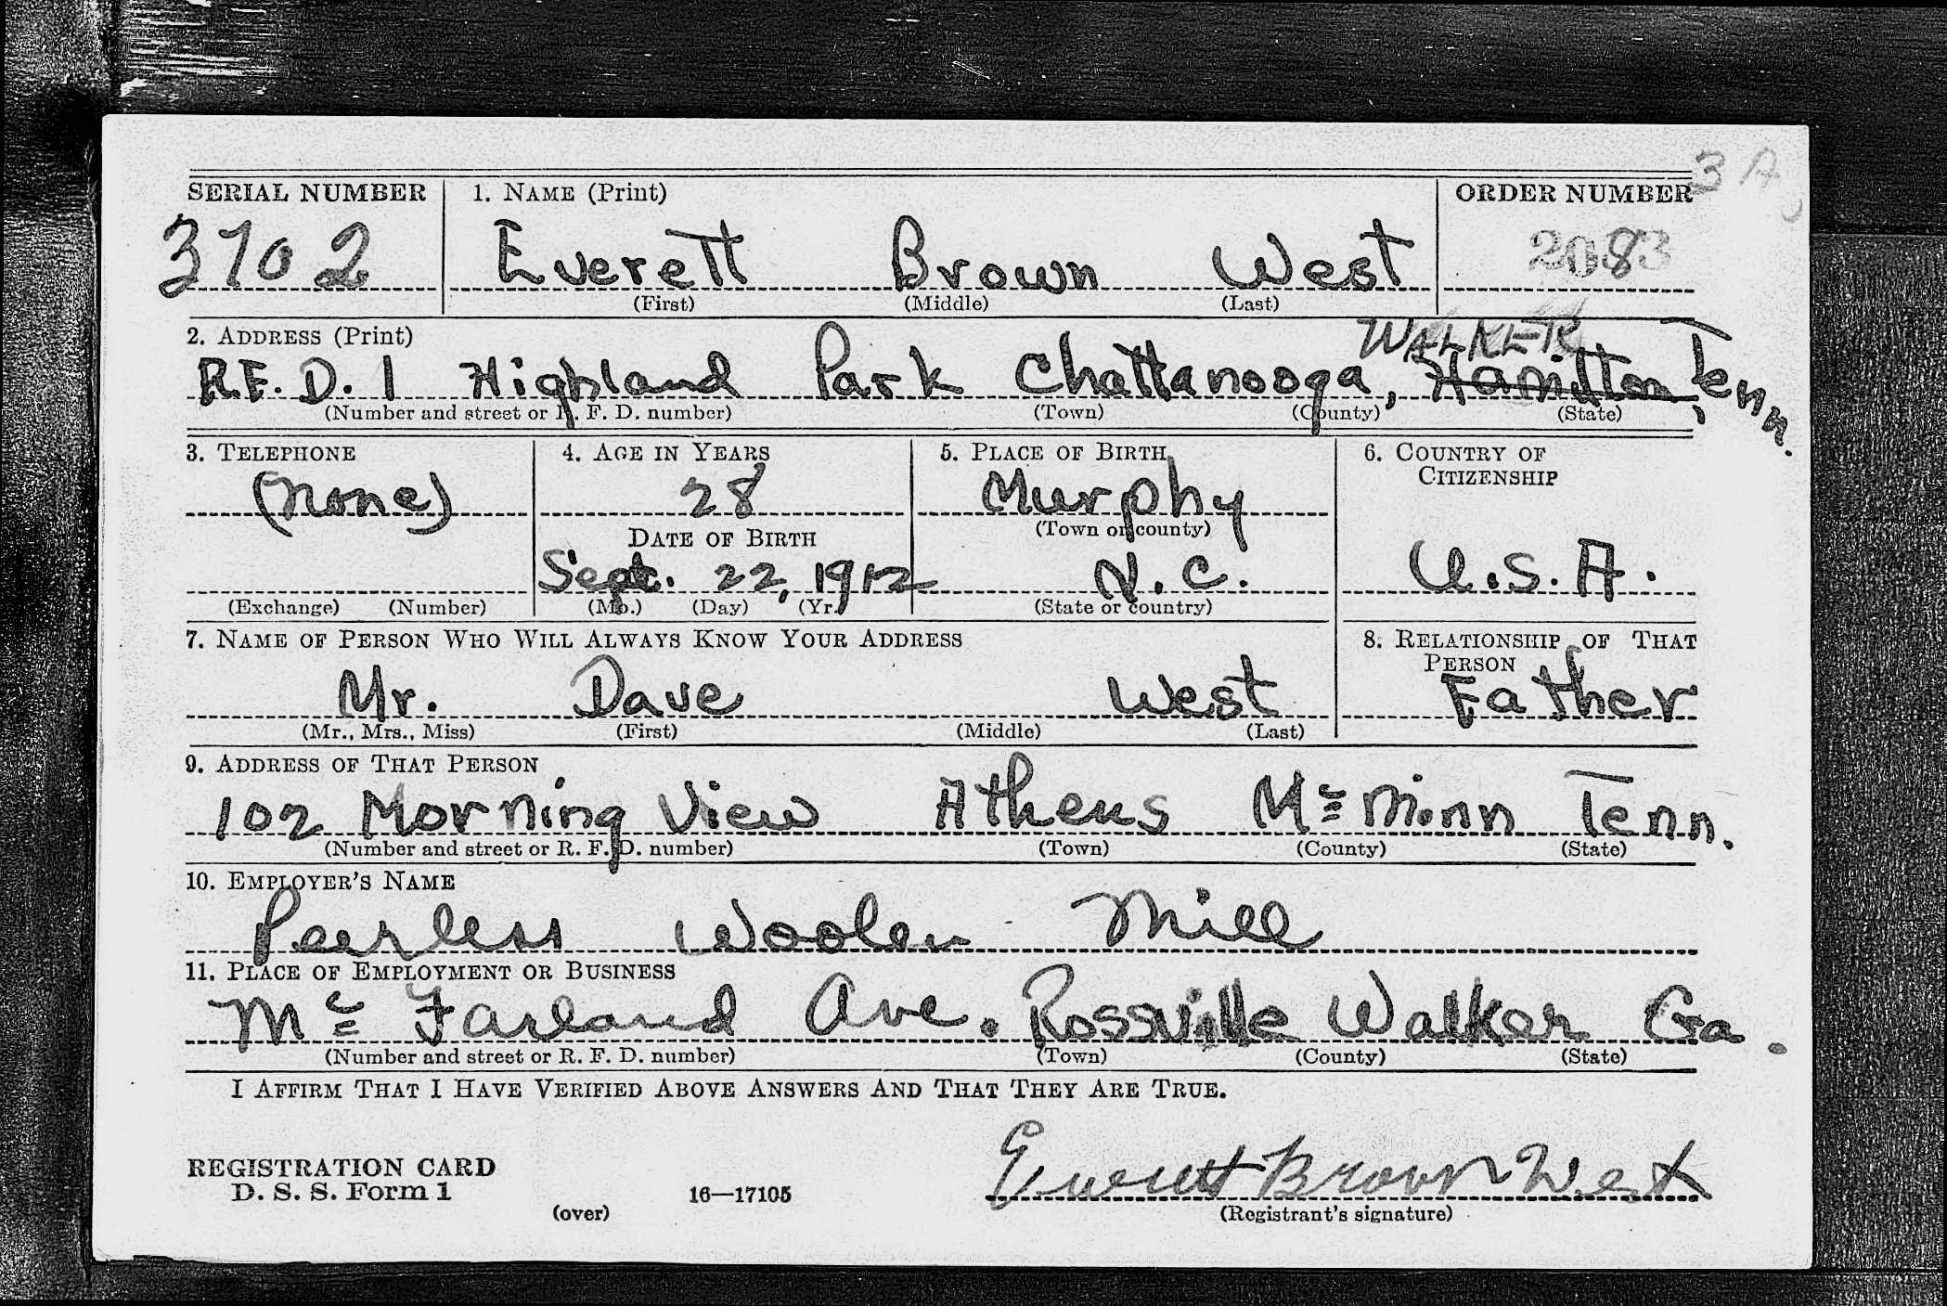 3 A
SERIAL NUMBER 1. NAME (Print) ORDER NUMBER
3702 Everett Brown West 2083
(First) (Middle) (Last)
2. ADDRESS (Print) WALKER
R.F.D. 1 Highland Park Chattanooga, Hamilton, Tenn.
(Number and street or R. F. D. number) (Town) (County) (State)
3. TELEPHONE 4. AGE IN YEARS 5. PLACE OF BIRTH 6. COUNTRY OF
CITIZENSHIP
(none) 28 Murphy
(Town or county)
DATE OF BIRTH
Sept. 22, 1912 N.C. U.S.A.
(Exchange) (Number) (Mo.) (Day) (Yr.) (State or country)
7. NAME OF PERSON WHO WILL ALWAYS KNOW YOUR ADDRESS 8. RELATIONSHIP OF THAT
PERSON
Mr. Dave West Father
(Mr., Mrs., Miss) (First) (Middle) (Last)
9. ADDRESS OF THAT PERSON
102 Morning View Athens Mc Minn Tenn.
(Number and street or R. F. D. number) (Town) (County) (State)
10. EMPLOYER'S NAME
Peerless Woolen Mill
11. PLACE OF EMPLOYMENT OR BUSINESS
Mc Farland Ave. Rossville Walker Ga.
(Number and street or R. F. D. number) (Town) (County) (State)
I AFFIRM THAT I HAVE VERIFIED ABOVE ANSWERS AND THAT THEY ARE TRUE.
REGISTRATION CARD
D. S. S. Form 1 16—17105 Everett Brown West
(over) (Registrant's signature)